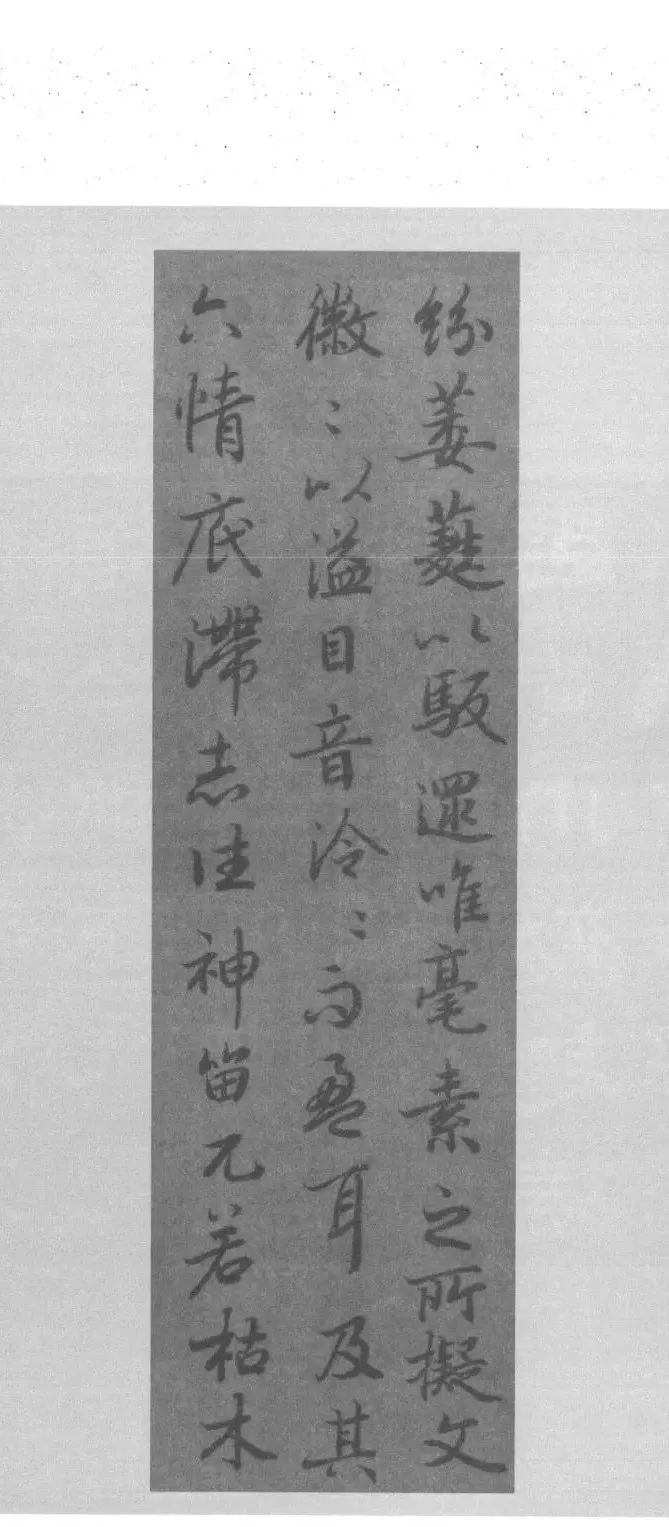 紛萎蕤以馺遝唯毫素之所擬文
徽〻以溢目音泠〻而盈耳及其
六情底滯志往神留兀若枯木